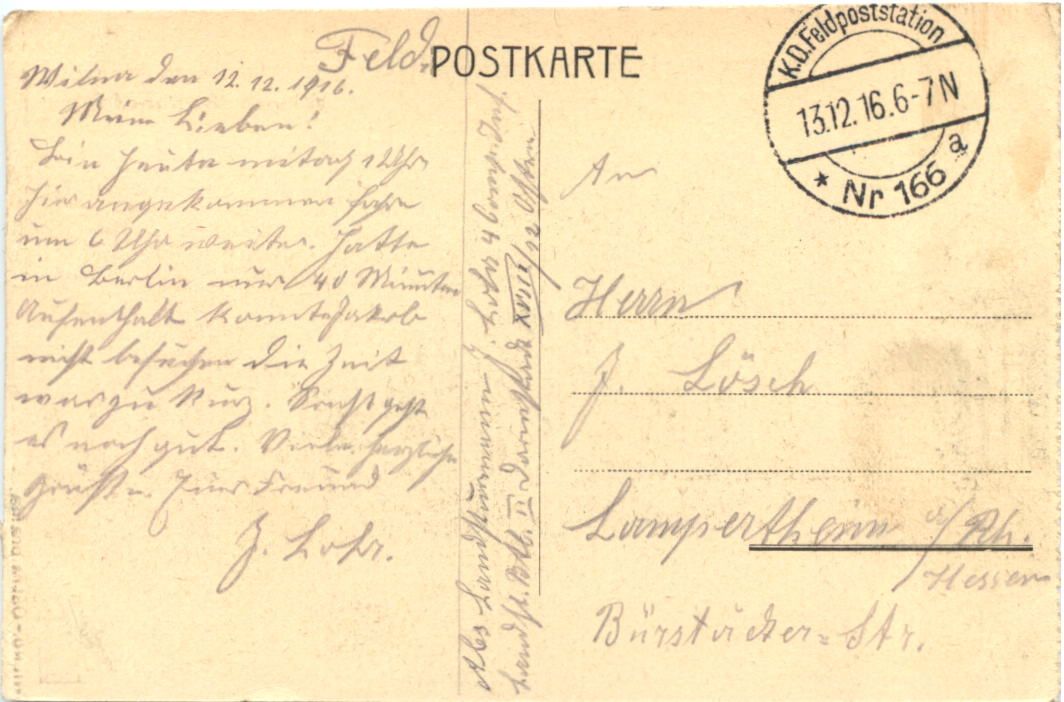 Feld POSTKARTE
K.D. Feldpoststation
13.12.16.6-7N
* Nr 166 a
Wilna den 12.12.1916.
Meine Lieben!
Bin heute mitach 1 Uhr
hier angekommen fahre
um 6 Uhr weiter. Hatte
in Berlin nur 40 Minuten
Aufenthalt konnte Jakob
nicht besuchen die Zeit
war zu kurz. Sonst geht
es noch gut. Viele herzliche
Grüße Euer Freund
J. Lohr.
An
Herrn
J. Lösch
Lampertheim a/Rh.
Hessen
Bürstädter-Str.